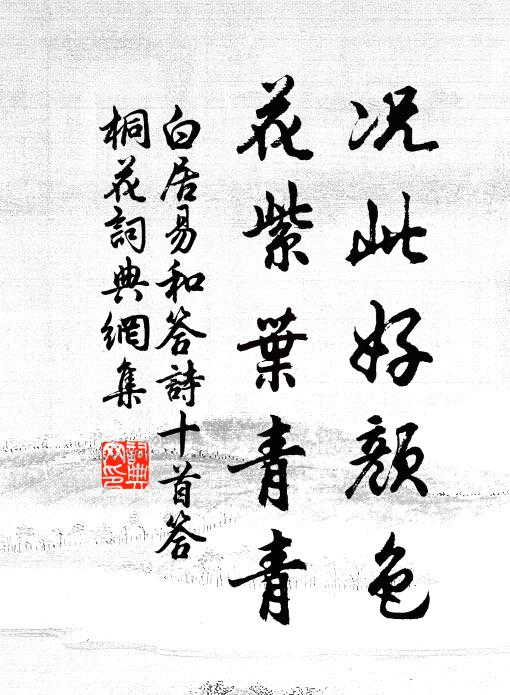 况此好颜色
花紫葉青青
白居易和答詩十首答
桐花詞典網集